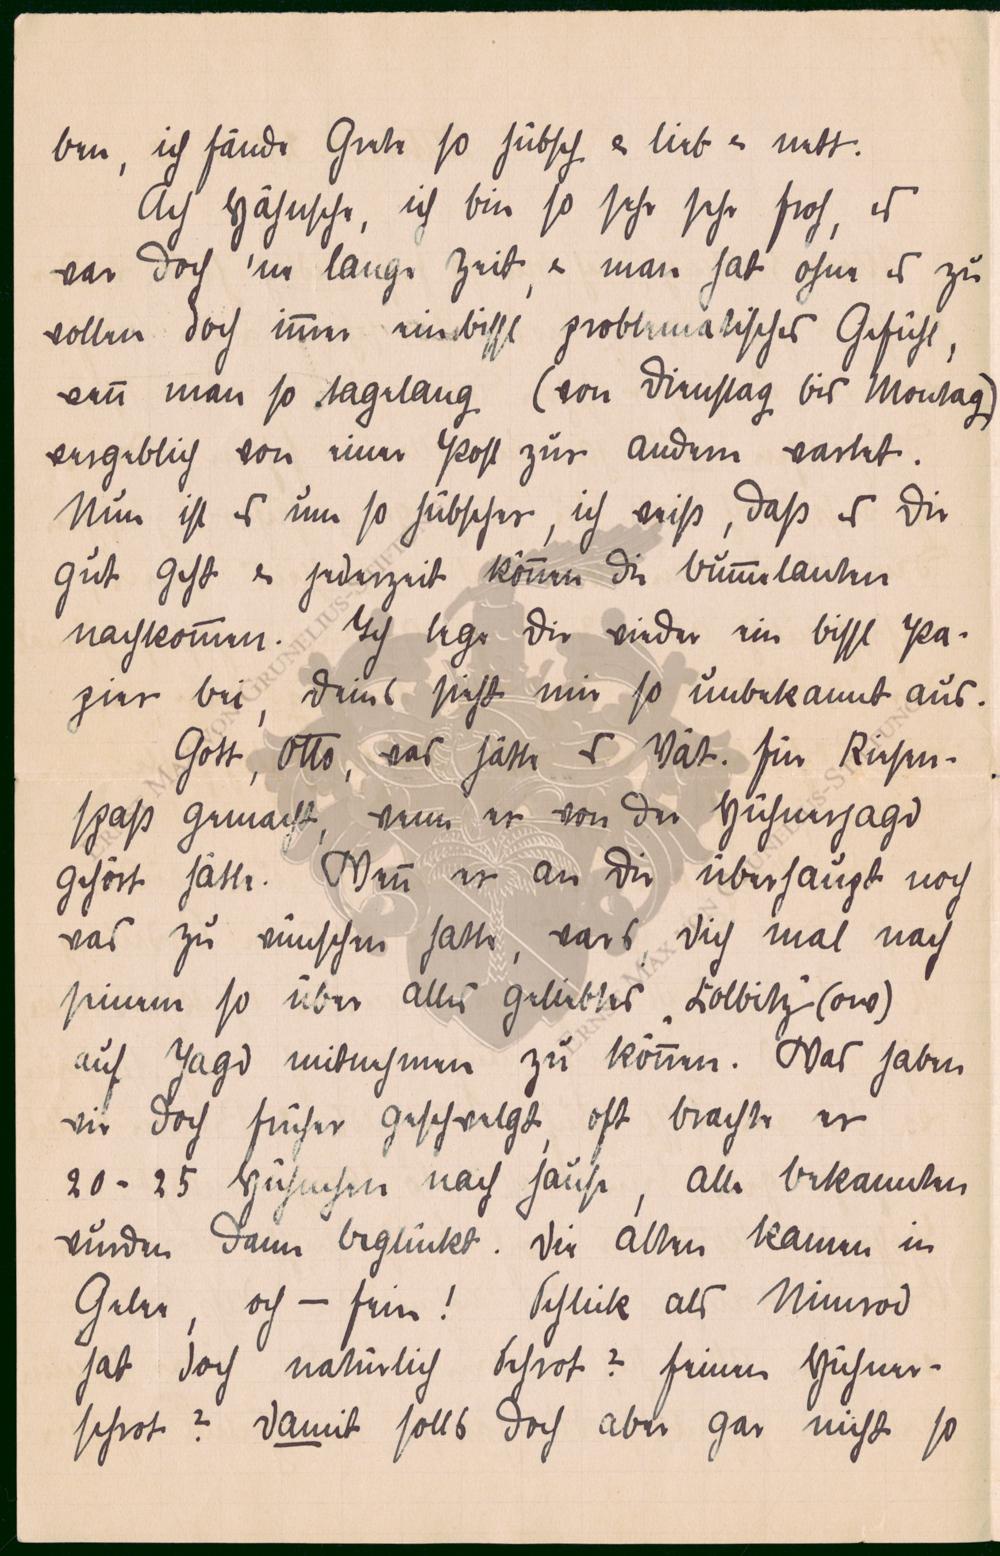 ben, ich fände Grete so hübsch & lieb & nett.
Ach Hähnsche, ich bin so sehr sehr froh, es
war doch 'ne lange Zeit, & man hat ohne es zu
wollen doch im̄er ein bissl problematisches Gefühl,
wen̄ man so tagelang (von Dienstag bis Montag)
vergeblich von einer Post zur andern wartet.
Nun ist es um so hübscher, ich weiß, daß es Dir
gut geht & jederzeit kön̄en die bum̄elanten
nachkom̄en. Ich lege Dir wieder ein bissl Pa-
pier bei, deins sieht mir so unbekannt aus.
Gott, Otto, was hätte es Vät. für Riesen-
spaß gemacht, wenn er von der Hühnerjagd
gehört hätte. Wen̄ er an Dir überhaupt noch
was zu wünschen hatte, wars, dich mal nach
seinem so über alles geliebtes „Kolbitz" (ow)
auf Jagd mitnehmen zu kön̄en. Was haben
wir doch früher geschwelgt, oft brachte er
20-25 Hühnchen nach hause, alle bekannten
wurden dann beglückt. Die alten kamen in
Gelee, och — fein! Schlick als Nimrod
hat doch natürlich Schrot? feinen Hühner-
schrot? Damit solls doch aber gar nicht so
MAX VON GRUNELIUS-STIFTUNG